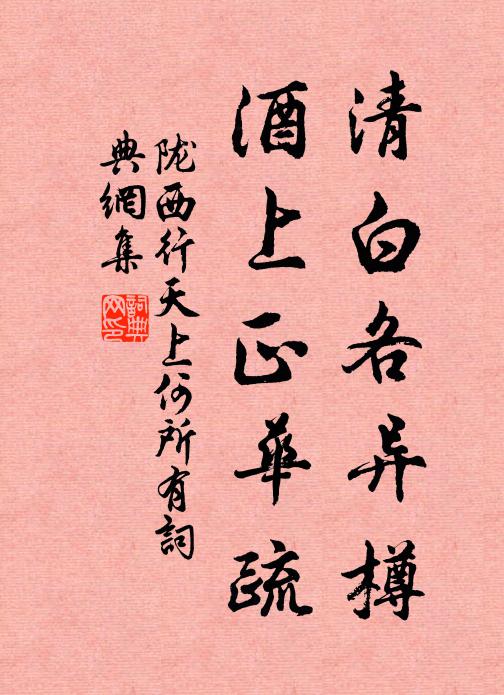 清白各异樽
酒上正華疏
陇西行天上何所有詞
典網集
詞典
网印